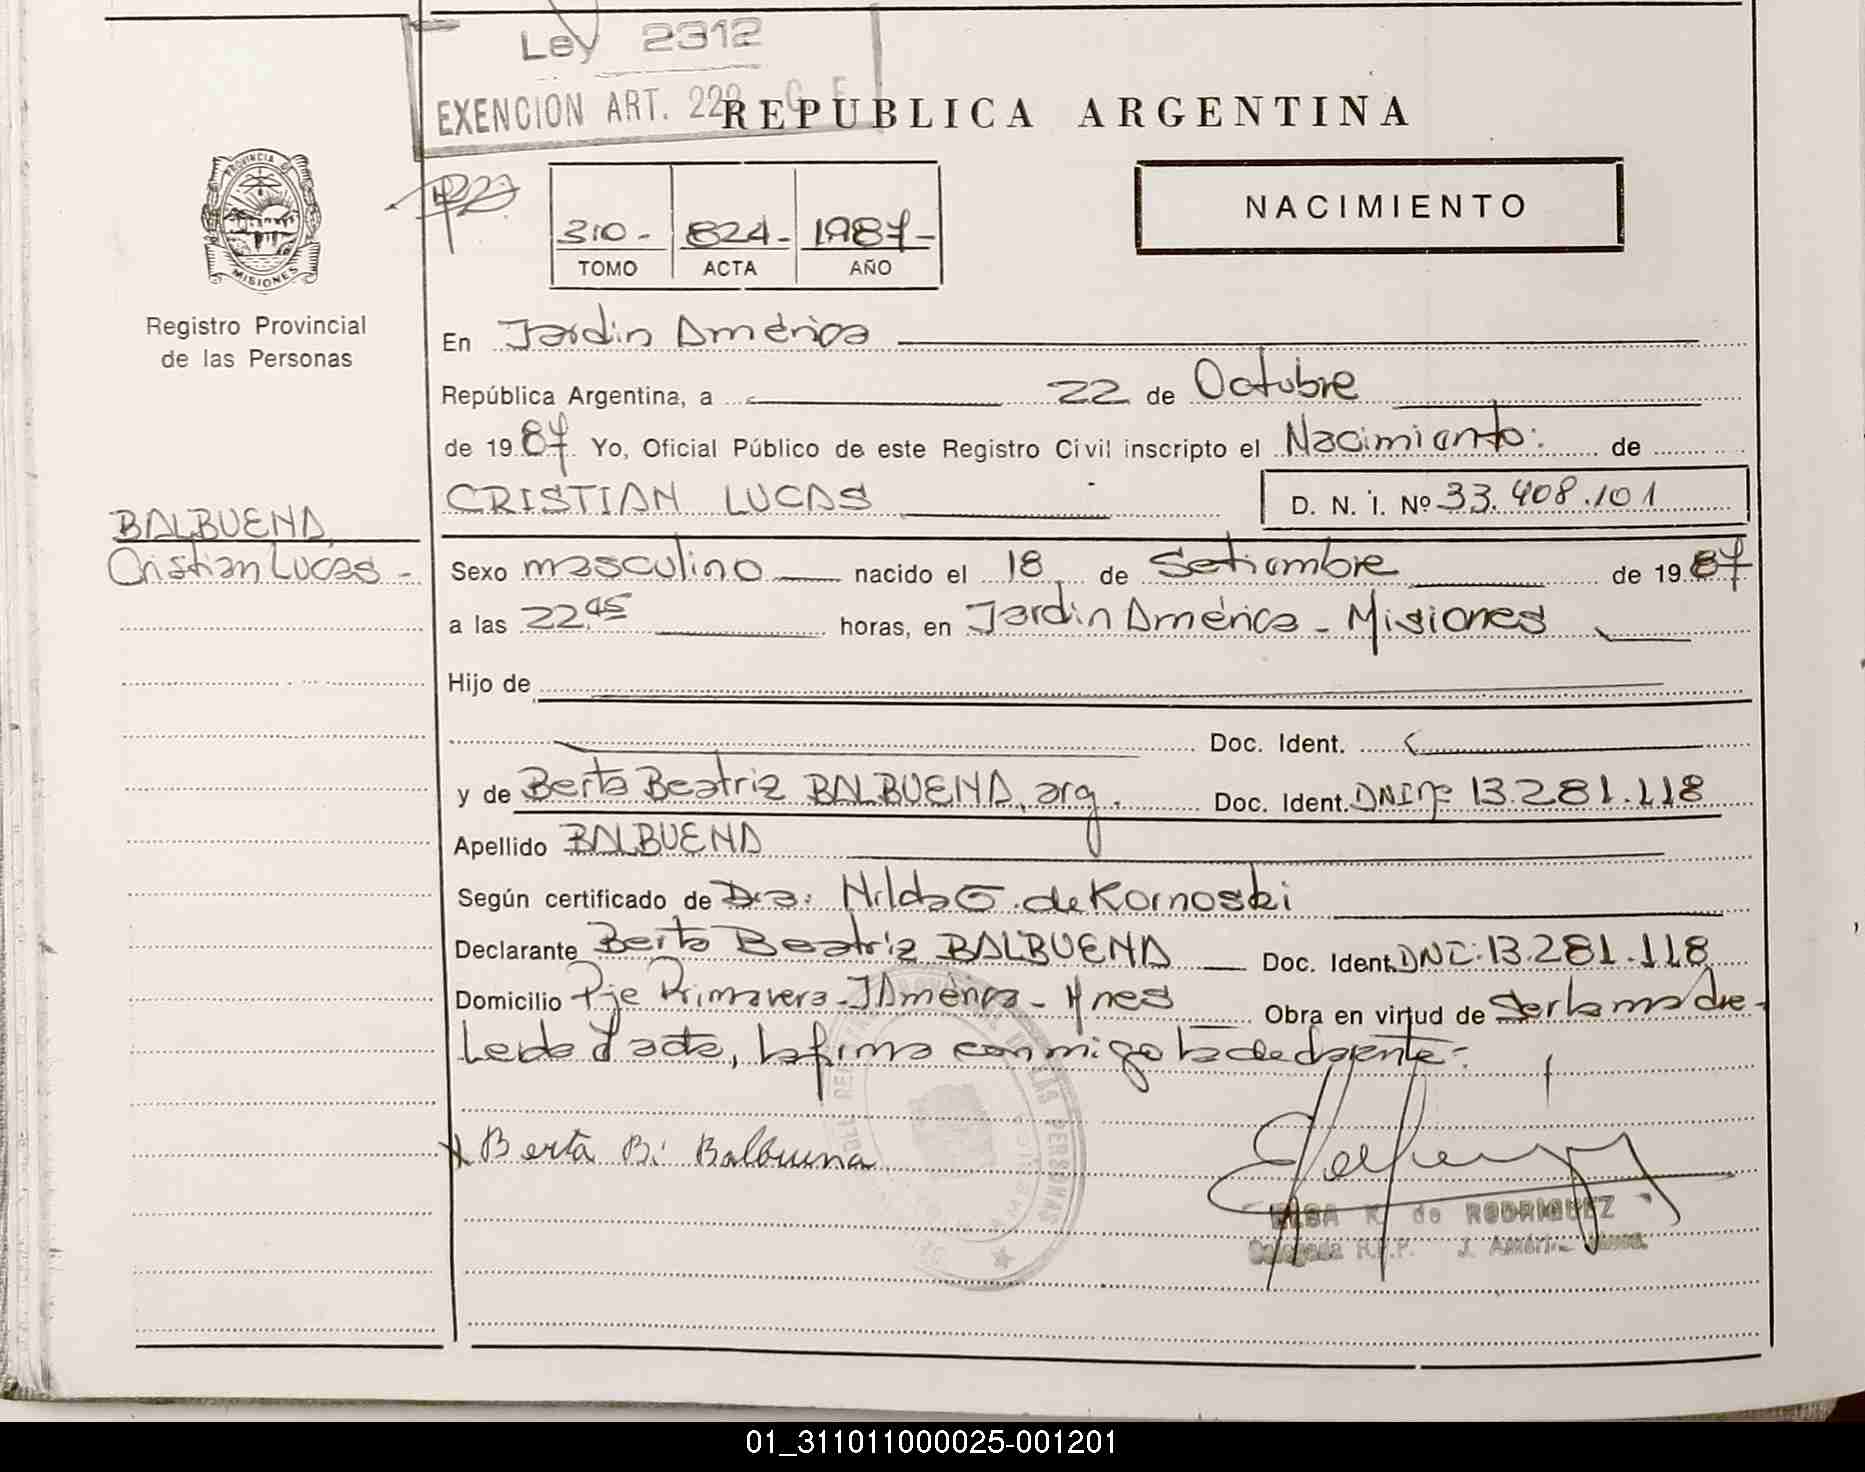 Ley 2312
EXENCION ART. 22
REPUBLICA ARGENTINA
PROVINCIA D
MISIONES
Registro Provincial
de las Personas
310 - 824 - 1987 -
TOMO ACTA AÑO
NACIMIENTO
En Jardín América
República Argentina, a 22 de Octubre
de 1987 Yo, Oficial Público de este Registro Civil inscripto el Nacimiento: de
CRISTIAN LUCAS D. N. I. Nº 33.408.101
BALBUENA,
Cristian Lucas -
Sexo masculino nacido el 18 de Setiembre de 1987
a las 22,45 horas, en Jardín América - Misiones
Hijo de
Doc. Ident.
y de Berta Beatriz BALBUENA, arg. Doc. Ident. DNI Nº 13.281.118
Apellido BALBUENA
Según certificado de Dra: Hilda G. de Kornoski
Declarante Berta Beatriz BALBUENA Doc. Ident. DNI: 13.281.118
Domicilio Pje Primavera - J América - Mnes Obra en virtud de Ser la madre -
Leída el acta, la firma conmigo la declarante -
Berta B. Balbuena
ELSA K. de RODRIGUEZ
Delegada R.P.P. J. América
01_311011000025-001201